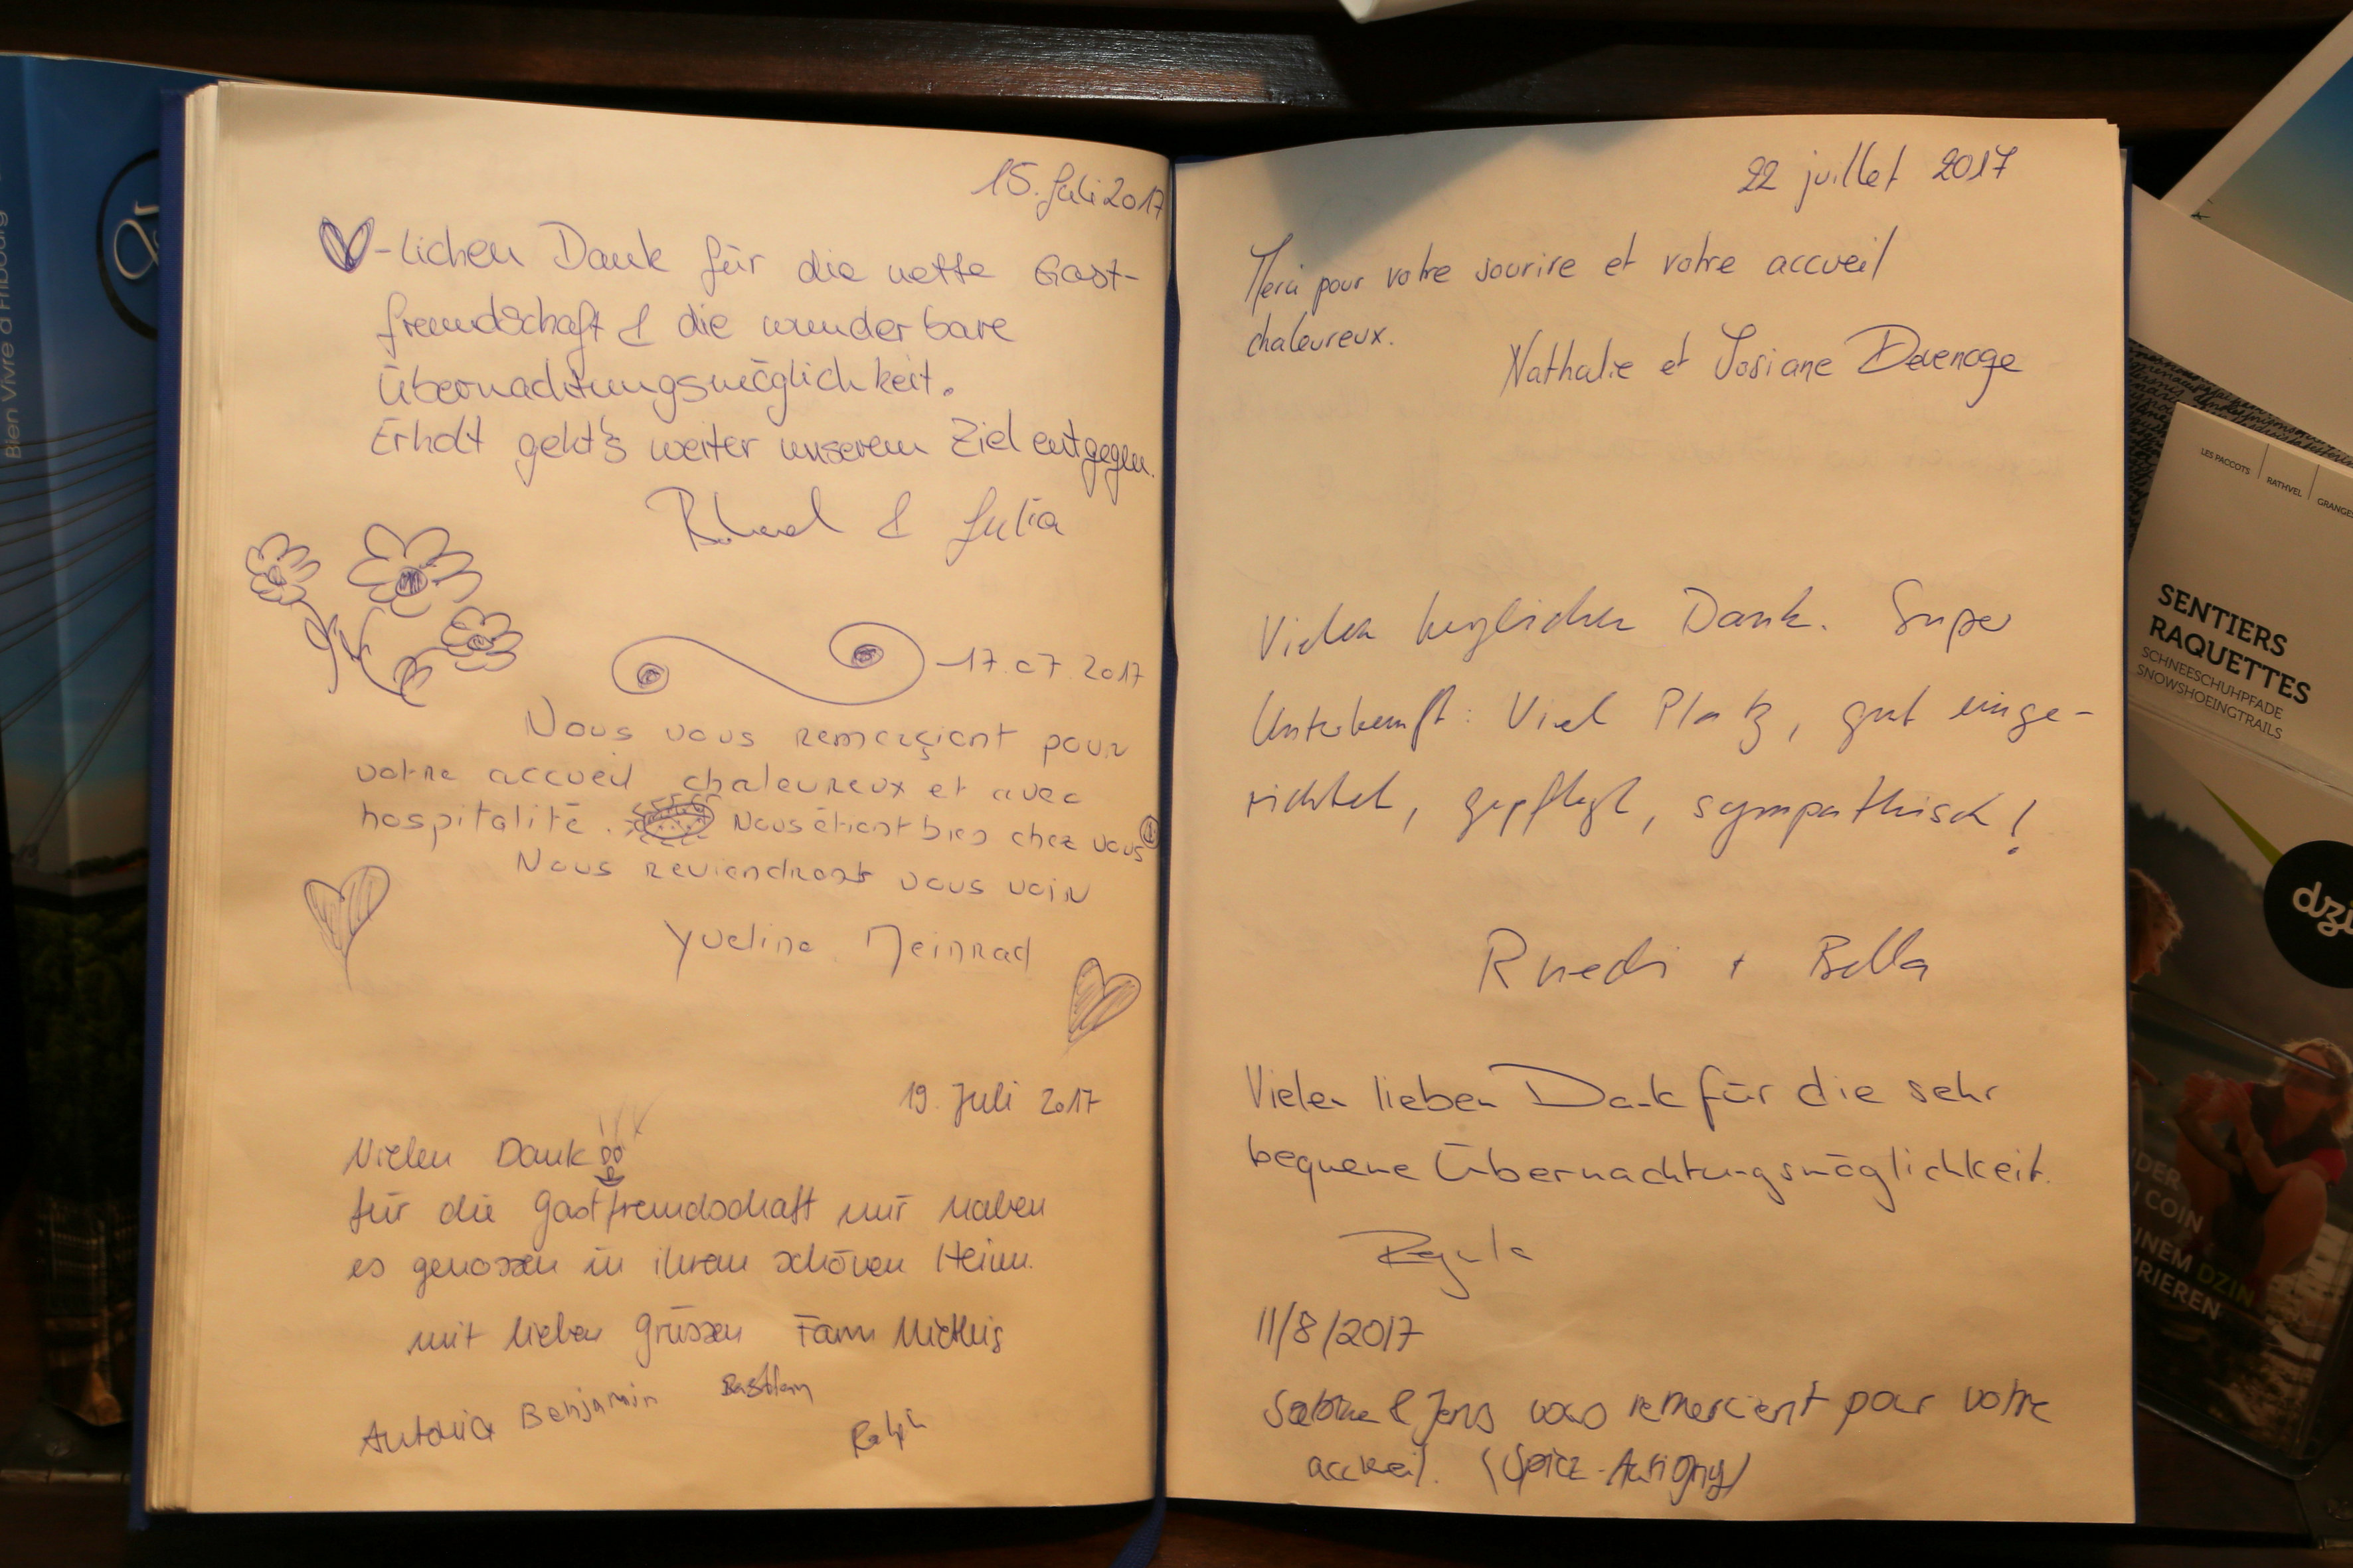 15. Juli 2017
-lichen Dank für die nette Gast-
freundschaft & die wunderbare
Übernachtungsmöglichkeit.
Erholt geht's weiter unserem Ziel entgegen.
& Julia
17.07.2017
Nous vous remerçiont pour
votre accueil chaleureux et avec
hospitalité. Nous étiont bien chez vous
Nous reviendront vous voir
Yveline Meinrad
19. Juli 2017
Vielen Dank
für die Gastfreundschaft wir haben
es genossen in ihrem schönen Heim.
mit lieben Grüssen Fam
Antonia Benjamin Bastian
Ralph
22 juillet 2017
Merci pour votre sourire et votre accueil
chaleureux.
Nathalie et Josiane Devenoge
Vielen herzlichen Dank. Super
Unterkunft: Viel Platz, gut einge-
richtet, gepflegt, sympathisch!
Ruedi + Bella
Vielen lieben Dank für die sehr
bequeme Übernachtungsmöglichkeit.
Regula
11/8/2017
Sabine & Jens vous remercient pour votre
accueil. (Spiez-Autigny)
Bien Vivre à Fribourg
LES PACCOTS
RATHVEL
SENTIERS
RAQUETTES
SCHNEESCHUHPFADE
SNOWSHOEINGTRAILS
COIN
DZIN